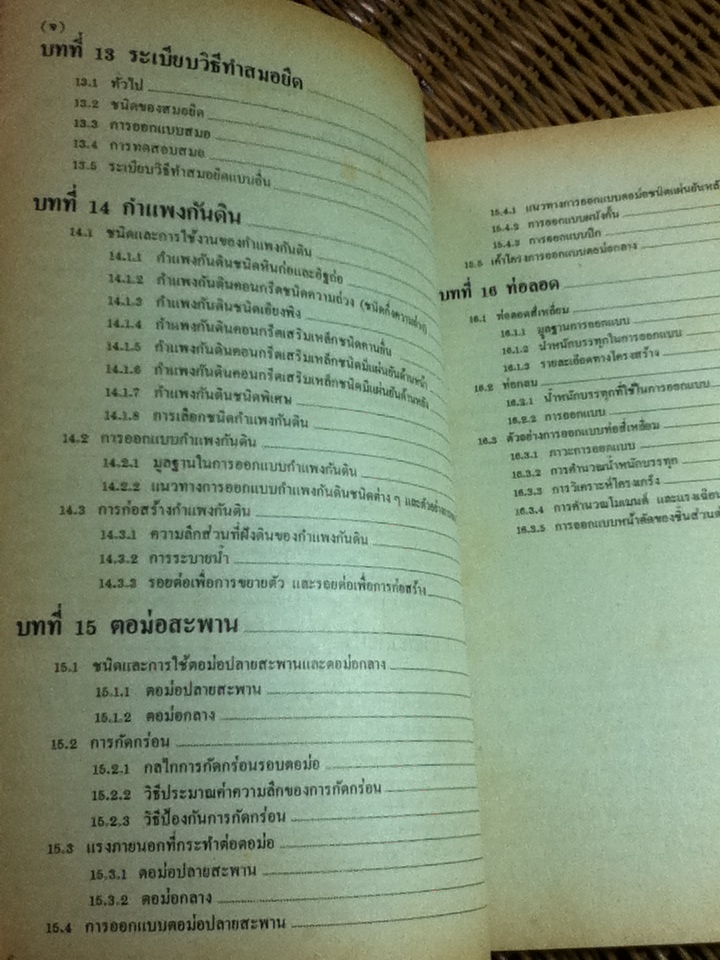 (ง)
บทที่ 13 ระเบียบวิธีทำสมอยึด
13.1 ทั่วไป
13.2 ชนิดของสมอยึด
13.3 การออกแบบสมอ
13.4 การทดสอบสมอ
13.5 ระเบียบวิธีทำสมอยึดแบบอื่น
บทที่ 14 กำแพงกันดิน
14.1 ชนิดและการใช้งานของกำแพงกันดิน
14.1.1 กำแพงกันดินชนิดหินก่อและอิฐก่อ
14.1.2 กำแพงกันดินคอนกรีตชนิดความถ่วง (ชนิดกึ่งความถ่วง)
14.1.3 กำแพงกันดินชนิดเอียงพิง
14.1.4 กำแพงกันดินคอนกรีตเสริมเหล็กชนิดคานยื่น
14.1.5 กำแพงกันดินคอนกรีตเสริมเหล็กชนิดมีแผ่นยันด้านหน้า
14.1.6 กำแพงกันดินคอนกรีตเสริมเหล็กชนิดมีแผ่นยันด้านหลัง
14.1.7 กำแพงกันดินชนิดพิเศษ
14.1.8 การเลือกชนิดกำแพงกันดิน
14.2 การออกแบบกำแพงกันดิน
14.2.1 มูลฐานในการออกแบบกำแพงกันดิน
14.2.2 แนวทางการออกแบบกำแพงกันดินชนิดต่าง ๆ และตัวอย่าง
14.3 การก่อสร้างกำแพงกันดิน
14.3.1 ความลึกส่วนที่ฝังดินของกำแพงกันดิน
14.3.2 การระบายน้ำ
14.3.3 รอยต่อเพื่อการขยายตัว และรอยต่อเพื่อการก่อสร้าง
บทที่ 15 ตอม่อสะพาน
15.1 ชนิดและการใช้ตอม่อปลายสะพานและตอม่อกลาง
15.1.1 ตอม่อปลายสะพาน
15.1.2 ตอม่อกลาง
15.2 การกัดกร่อน
15.2.1 กลไกการกัดกร่อนรอบตอม่อ
15.2.2 วิธีประมาณค่าความลึกของการกัดกร่อน
15.2.3 วิธีป้องกันการกัดกร่อน
15.3 แรงภายนอกที่กระทำต่อตอม่อ
15.3.1 ตอม่อปลายสะพาน
15.3.2 ตอม่อกลาง
15.4 การออกแบบตอม่อปลายสะพาน
15.4.1 แนวทางการออกแบบตอม่อชนิดแผ่นยันหลัง
15.4.2 การออกแบบผนังกั้น
15.4.3 การออกแบบปีก
15.5 เค้าโครงการออกแบบตอม่อกลาง
บทที่ 16 ท่อลอด
16.1 ท่อลอดสี่เหลี่ยม
16.1.1 มูลฐานการออกแบบ
16.1.2 น้ำหนักบรรทุกในการออกแบบ
16.1.3 รายละเอียดทางโครงสร้าง
16.2 ท่อกลม
16.2.1 น้ำหนักบรรทุกที่ใช้ในการออกแบบ
16.2.2 การออกแบบ
16.3 ตัวอย่างการออกแบบท่อสี่เหลี่ยม
16.3.1 ภาวะการออกแบบ
16.3.2 การคำนวณน้ำหนักบรรทุก
16.3.3 การวิเคราะห์โครงแกร็ง
16.3.4 การคำนวณโมเมนต์ และแรงเฉือน
16.3.5 การออกแบบหน้าตัดของชิ้นส่วน